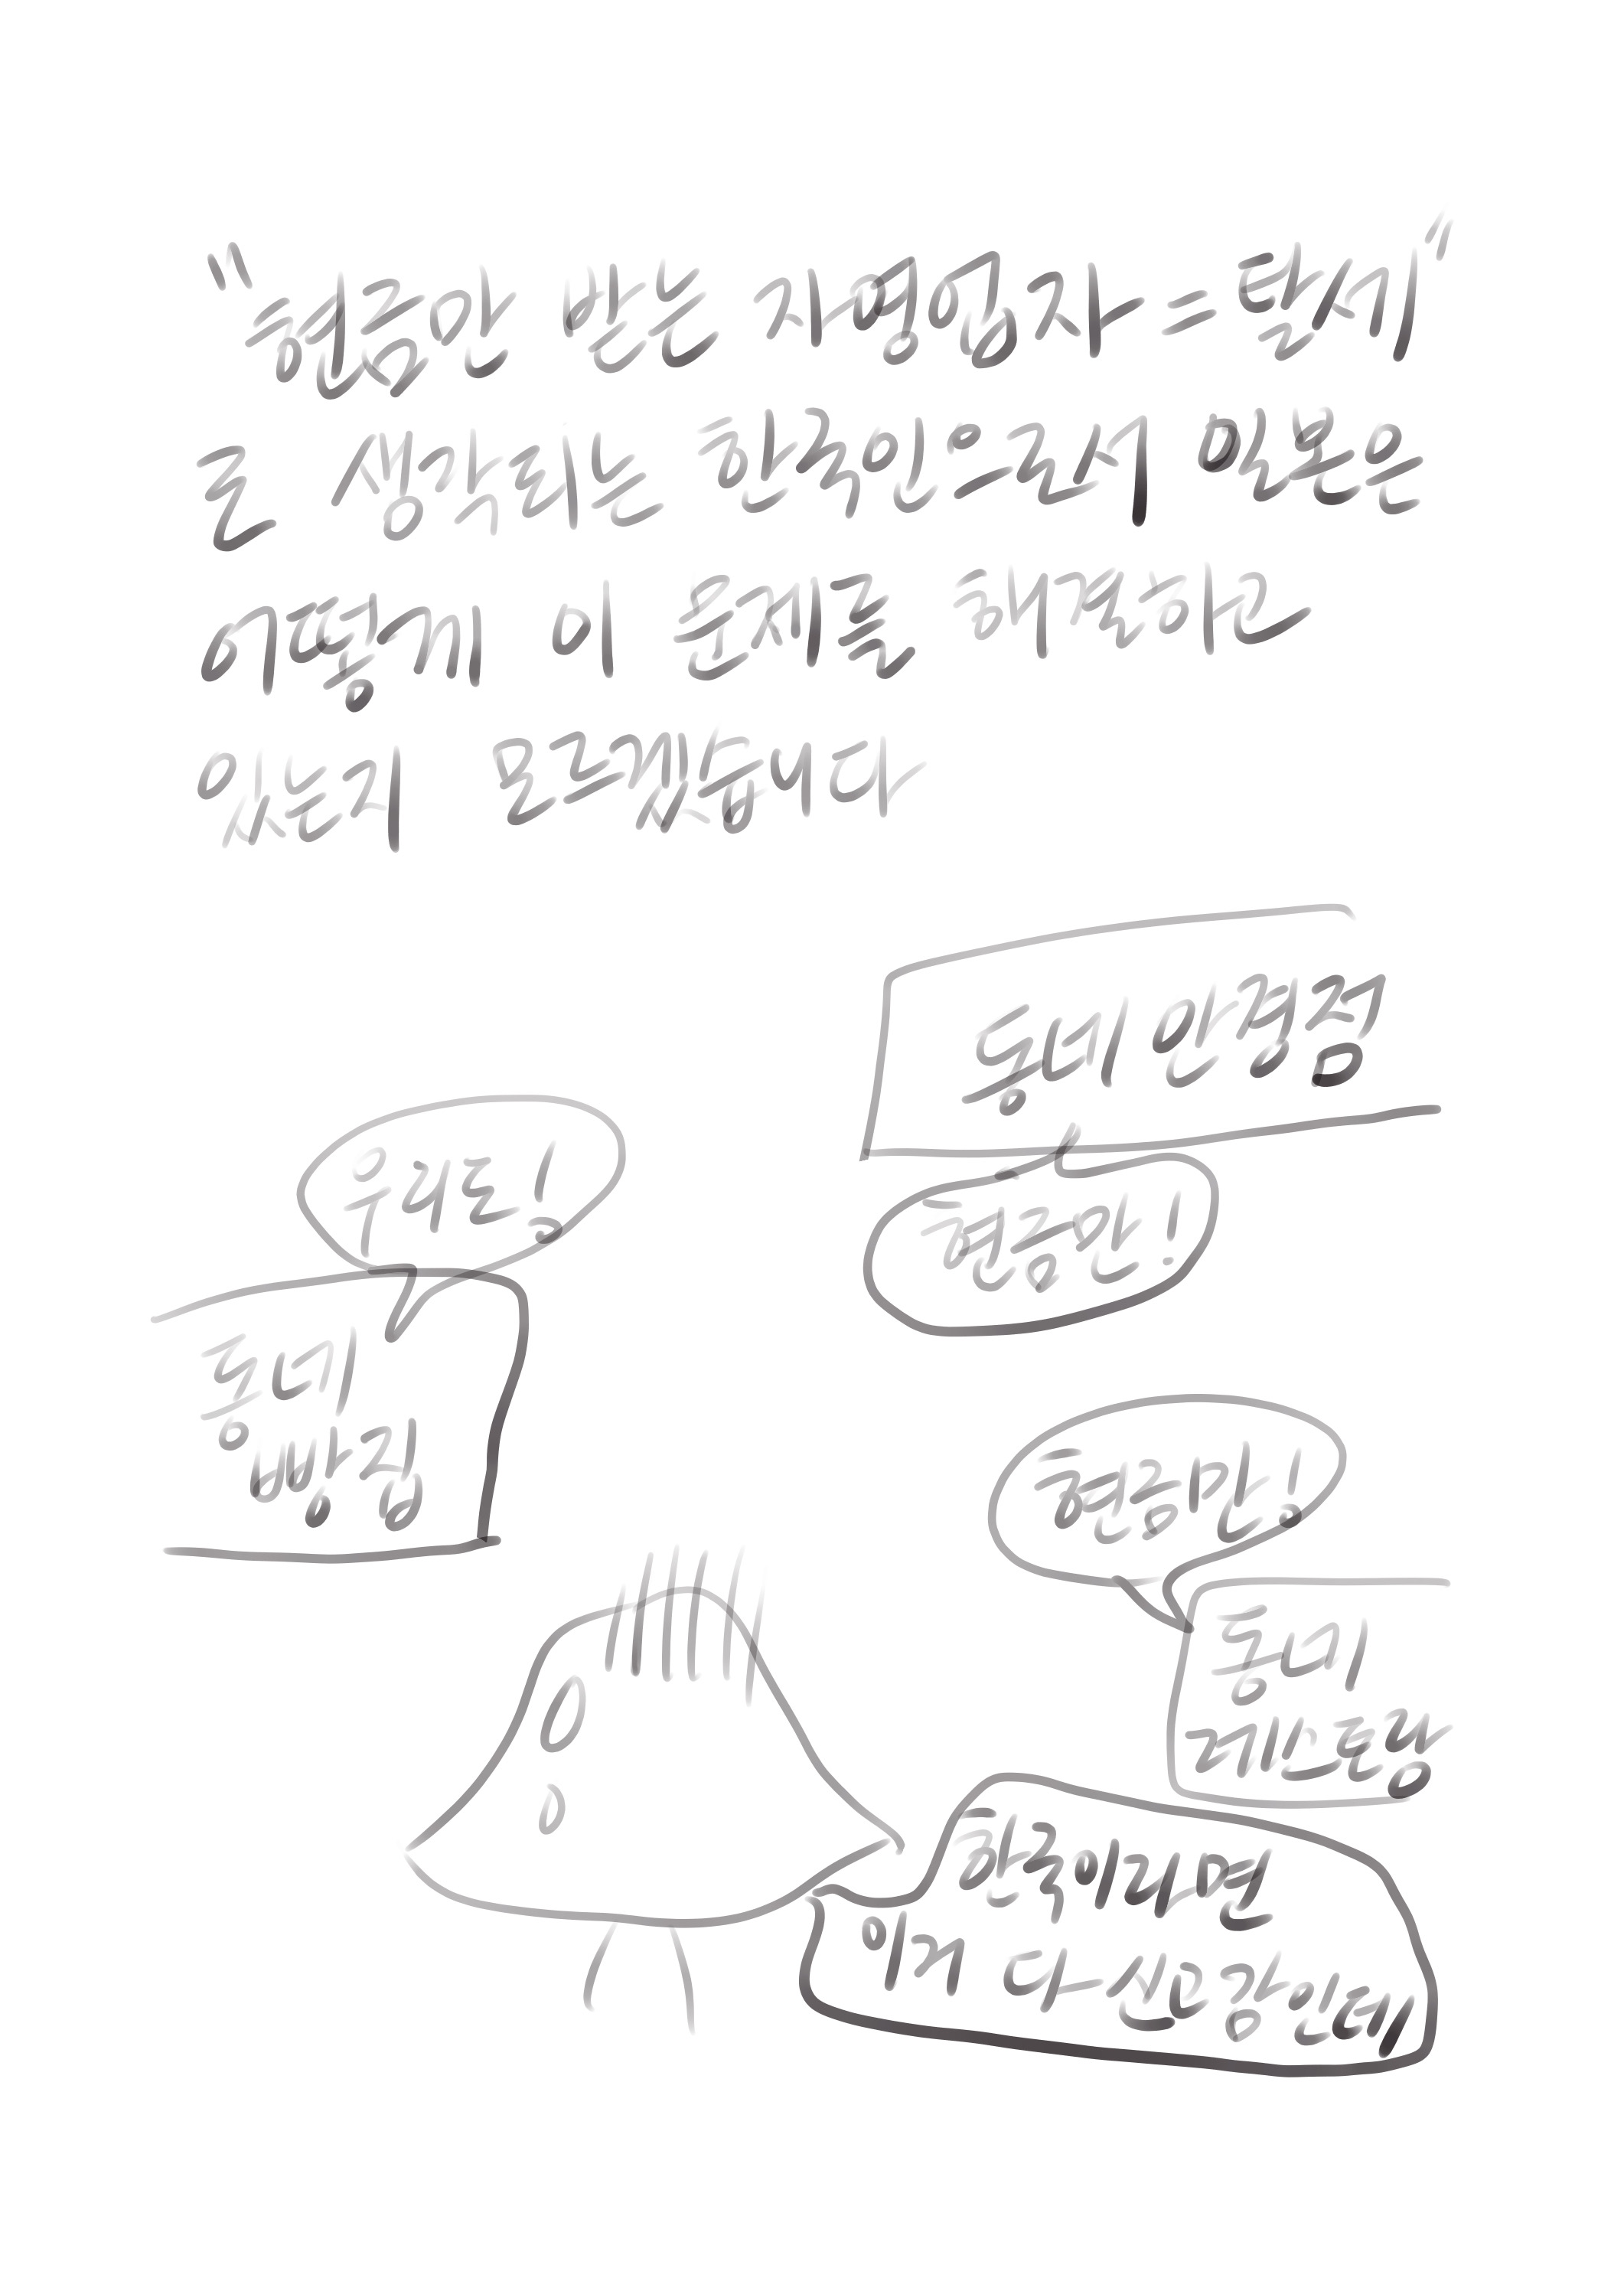 "현금만 받는 자영업자=탈세"
를 생각하는 한국인으로서 일본은
어떻게 이 문제를 해결하고
있는지 모르겠습니다
동네 안경점
우리도!
현금만!
동네
빵집
현금만!
동네
레스토랑
한국이라면
이거 다 신고감인데